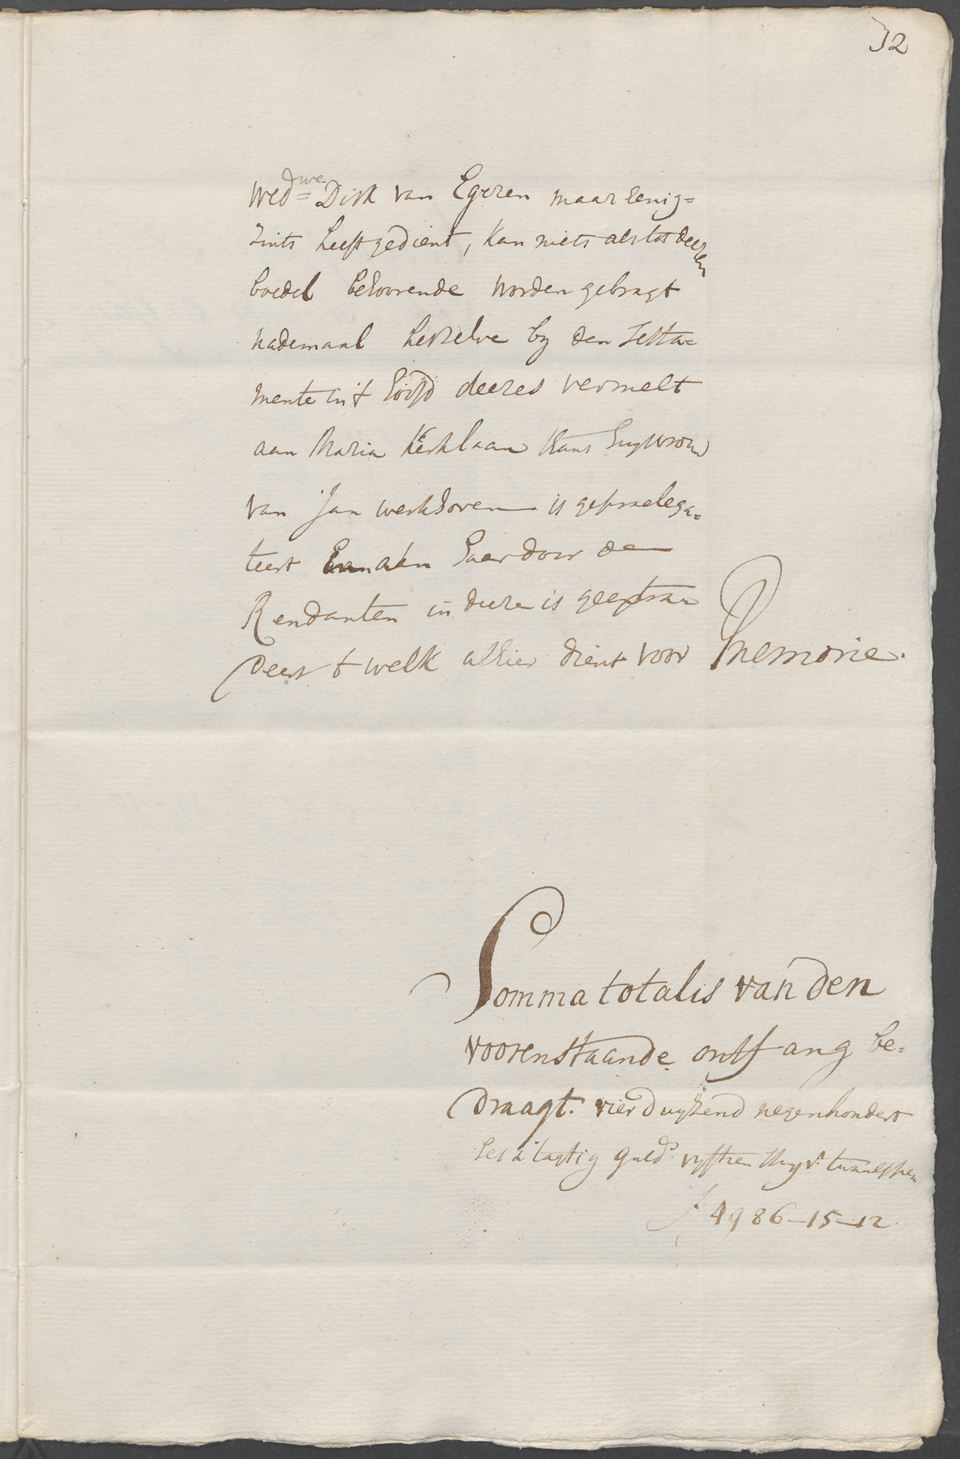 32
Wed:we Dirk van Egeren maar eenig=
zints heeft gedient, kan niets als tot deezen
boedel behoorende worden gebragt
nademaal hetzelve by den Testa=
mente in 't hoofd deezes vermelt
aan Maria Kerklaan thans huysvrou
van Jan werkhoven is gepraelega=
teert en aan haar door de
Rendanten in deeze is geextra
deert 't welk alhier dient voor Memorie.
Somma totalis van den
voorenstaande ontfang be=
draagt. vier duyzend negenhondert
ses a tagtig guld.s vyftien stuyv.s twaelf pen
f 4986-15-12